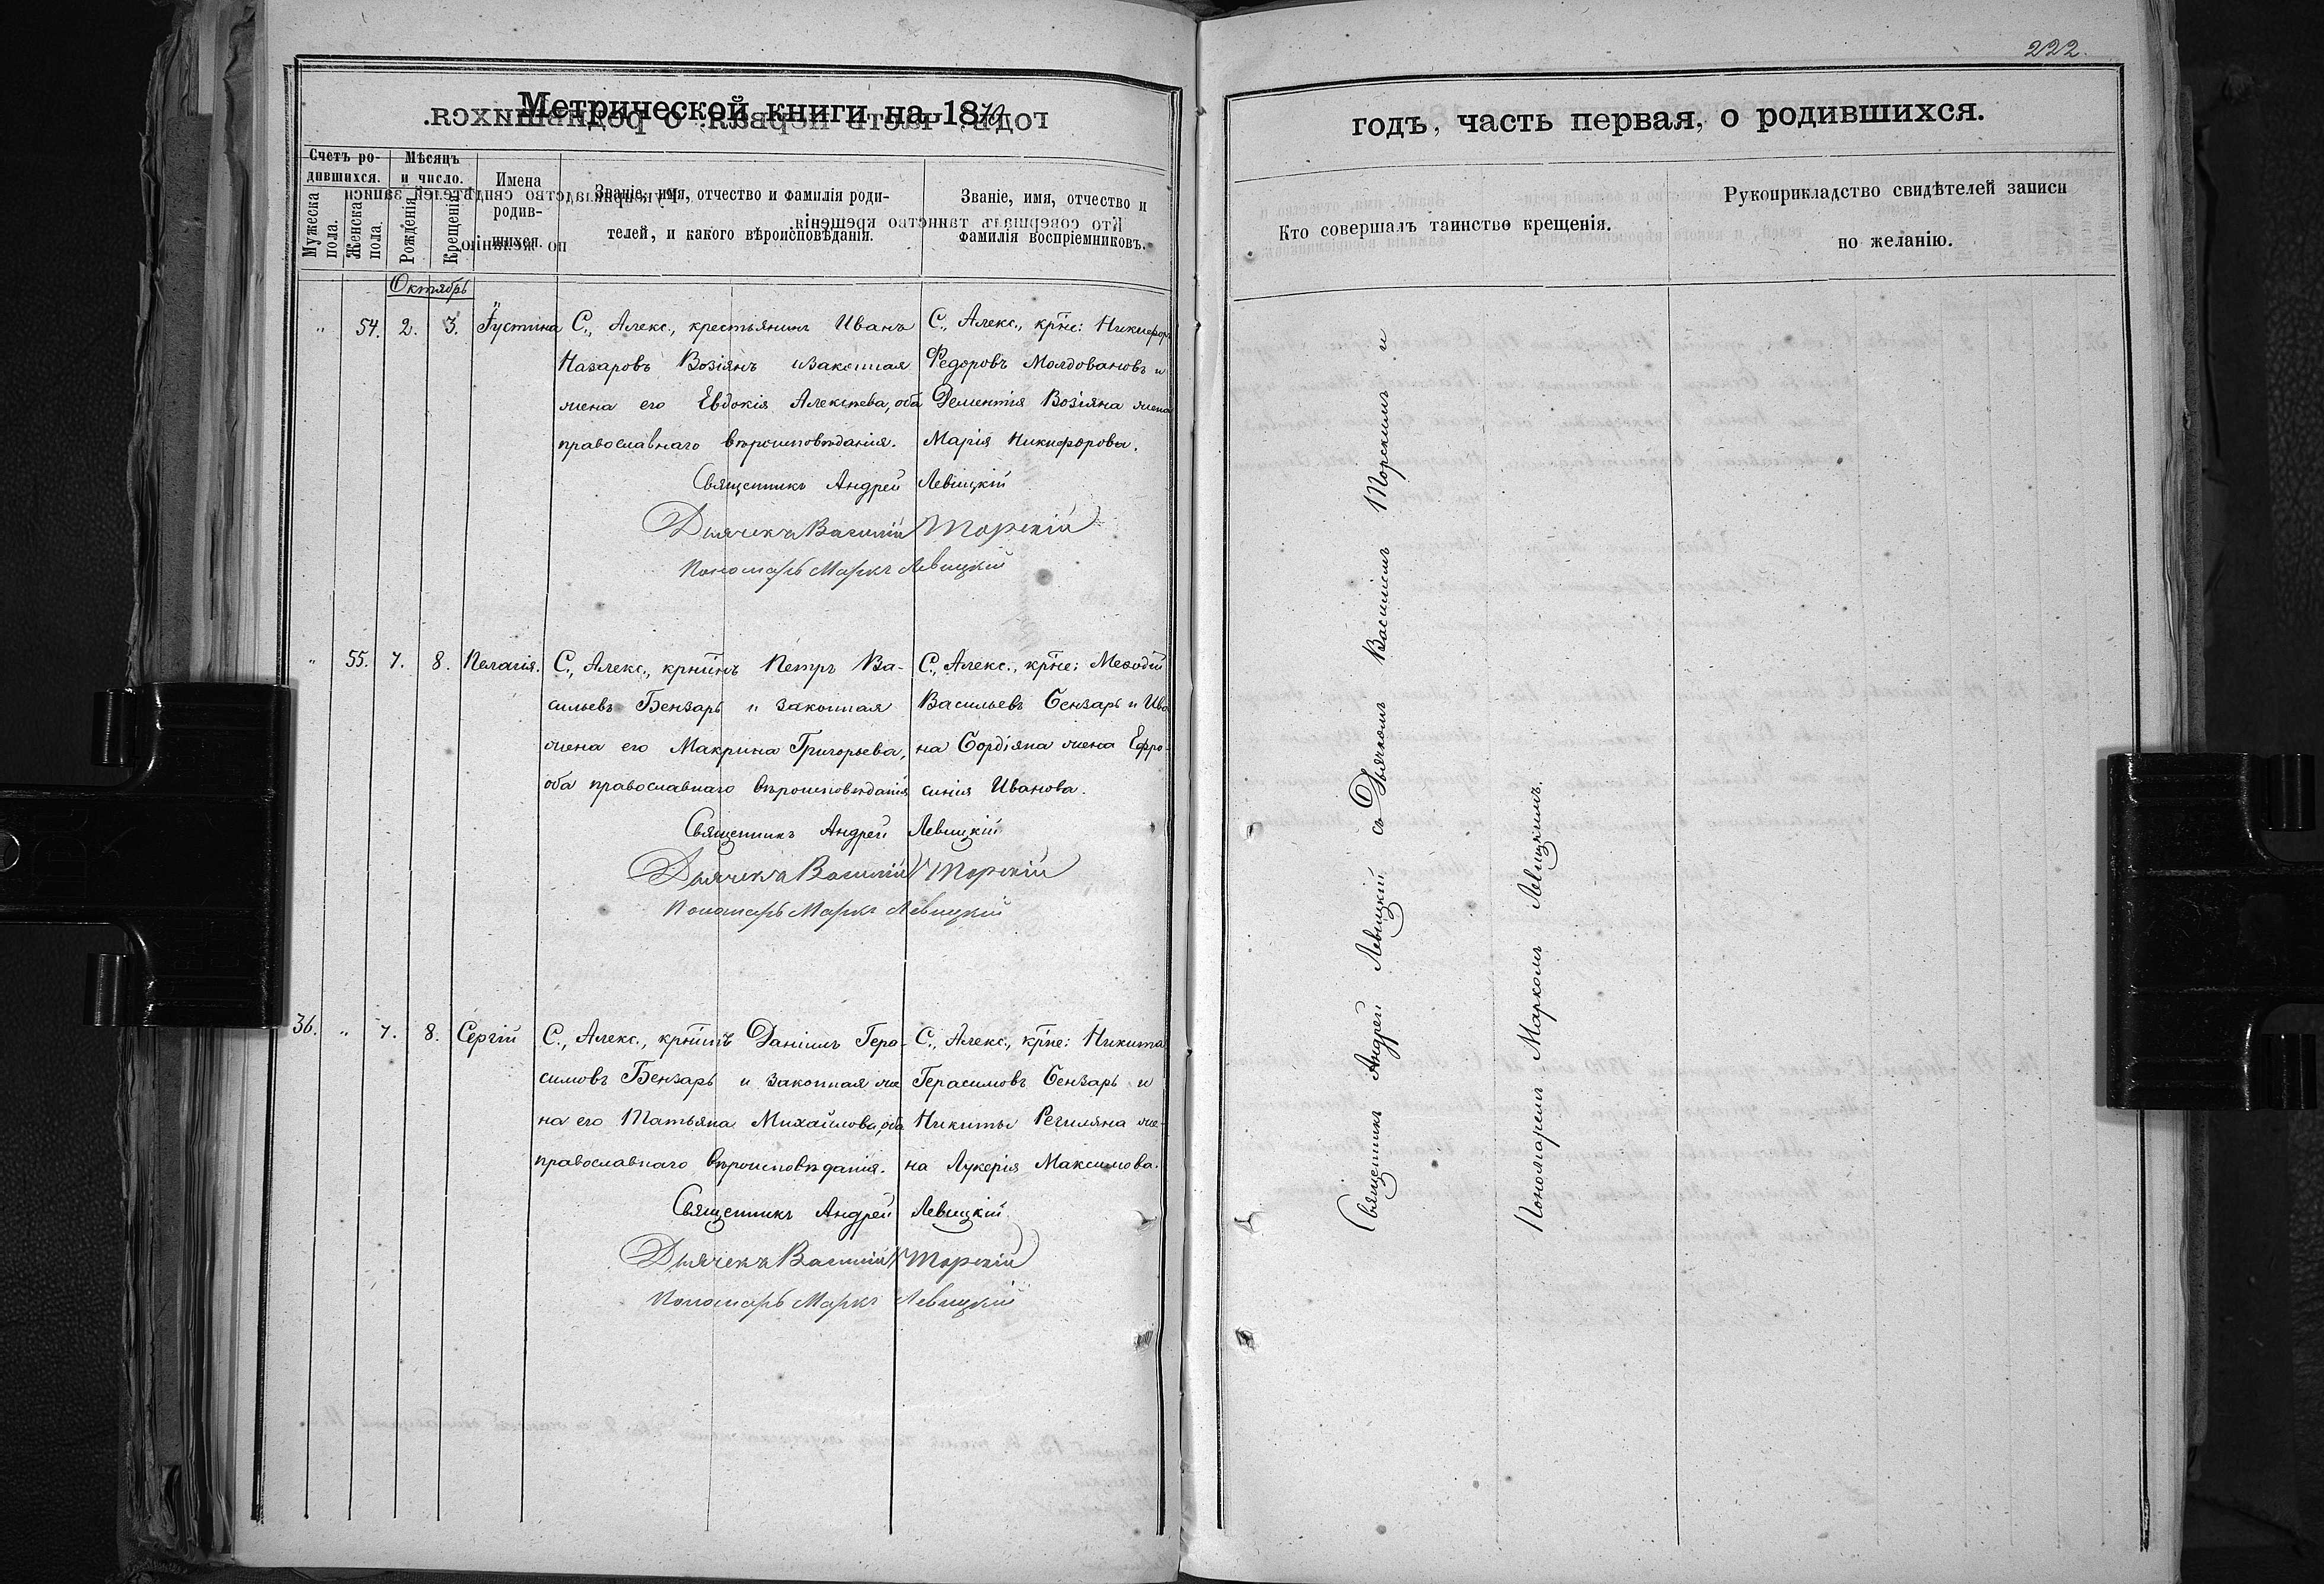 222.
Метрической книги на 18
годъ, часть первая, о родившихся.
Счетъ ро-
дившихся.
Мужеска пола.
Женска пола.
Мѣсяцъ
и число.
Рожденія
Крещенія
Имена
родив-
шихся.
Званіе, имя, отчество и фамилія роди-
телей, и какого вѣроисповѣданія.
Званіе, имя, отчество и
фамилія воспріемниковъ.
Кто совершалъ таинство крещенія.
Рукоприкладство свидѣтелей записи
по желанію.
Октябрь
" 54. 2. 3. Іустина С., Алекс., крестьянинъ Иванъ
Назаровъ Возіянъ и законная
жена его Евдокія Алексѣева, оба
православнаго вѣроисповѣданія.
С., Алекс., кр-не: Никифоръ
Федоровъ Молдовановъ и
Дементія Возіяна жена
Марія Никифорова.
Священникъ Андрей Левицкій
Дьячекъ Василій Торскій
Пономарь Маркъ Левицкій
" 55. 7. 8. Пелагія. С., Алекс., кр-нинъ Петръ Ва-
сильевъ Бензарь и законная
жена его Макрина Григорьева,
оба православнаго вѣроисповѣданія
С., Алекс., кр-не: Меѳодій
Васильевъ Бензарь и Ива
на Бордіяна жена Ефро-
синія Иванова.
Священникъ Андрей Левицкій
Дьячекъ Василій Торскій
Пономарь Маркъ Левицкій
36. " 7. 8. Сергій С., Алекс., кр-нинъ Даніилъ Гера-
симовъ Бензарь и законная же
на его Татьяна Михайлова, оба
православнаго вѣроисповѣданія.
С., Алекс., кр-не: Никита
Герасимовъ Бензарь и
Никиты Регияна же-
на Лукерія Максимова.
Священникъ Андрей Левицкій
Дьячекъ Василій Торскій
Пономарь Маркъ Левицкій
Священникъ Андрей Левицкій съ Дьячкомъ Василіемъ Торскимъ и
Пономаремъ Маркомъ Левицкимъ.